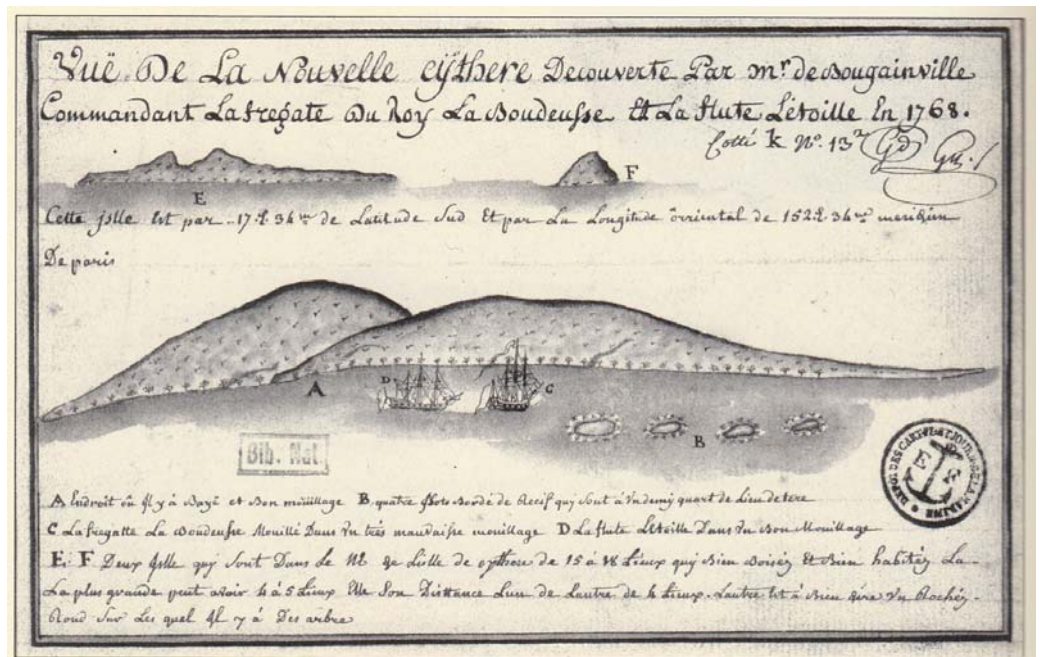 Vuë De La Nouvelle cÿthere Decouverte Par mr. de Bougainville
Commandant La fregate Du Roy La Boudeusse Et La flute L'étoille En 1768.
Cotté k No. 13
E
F
Cette jslle Est par 17.d. 34 m de Latitude Sud Et par La Longitude orriental de 152.d. 34 m meridien
De paris
A
D
C
B
Bib. Nat.
A Endroit où jl y à Baye et Bon moüillage B quatre jlots Bordé de Recif qui sont à un demi quart de Lieu de tere
C La fregatte La Boudeusse Mouillé Dans un trés mauvaisse mouillage D La flute L'Etoille Dans un Bon Mouillage
E. F Deux jslle qui sont Dans Le de Lisle de cythere de 15 à 18 Lieux qui Bien Boisés Et Bien habités La
La plus grande peut avoir 4 à 5 Lieux Elle Son Disttance Lun de Lautre de 4 Lieux. Lautre Est à Bien dire un Rochés
Rond Sur Les quel jl y à Des arbre